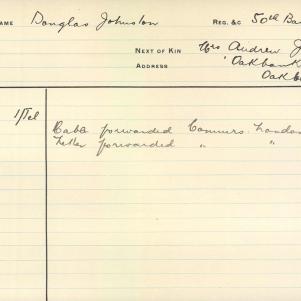 NAME Douglas Johnston REG. &C 50th Ba
NEXT OF KIN Mrs Andrew J
ADDRESS "Oakbank
Oak
Cable forwarded Commrs. London
Letter forwarded " "